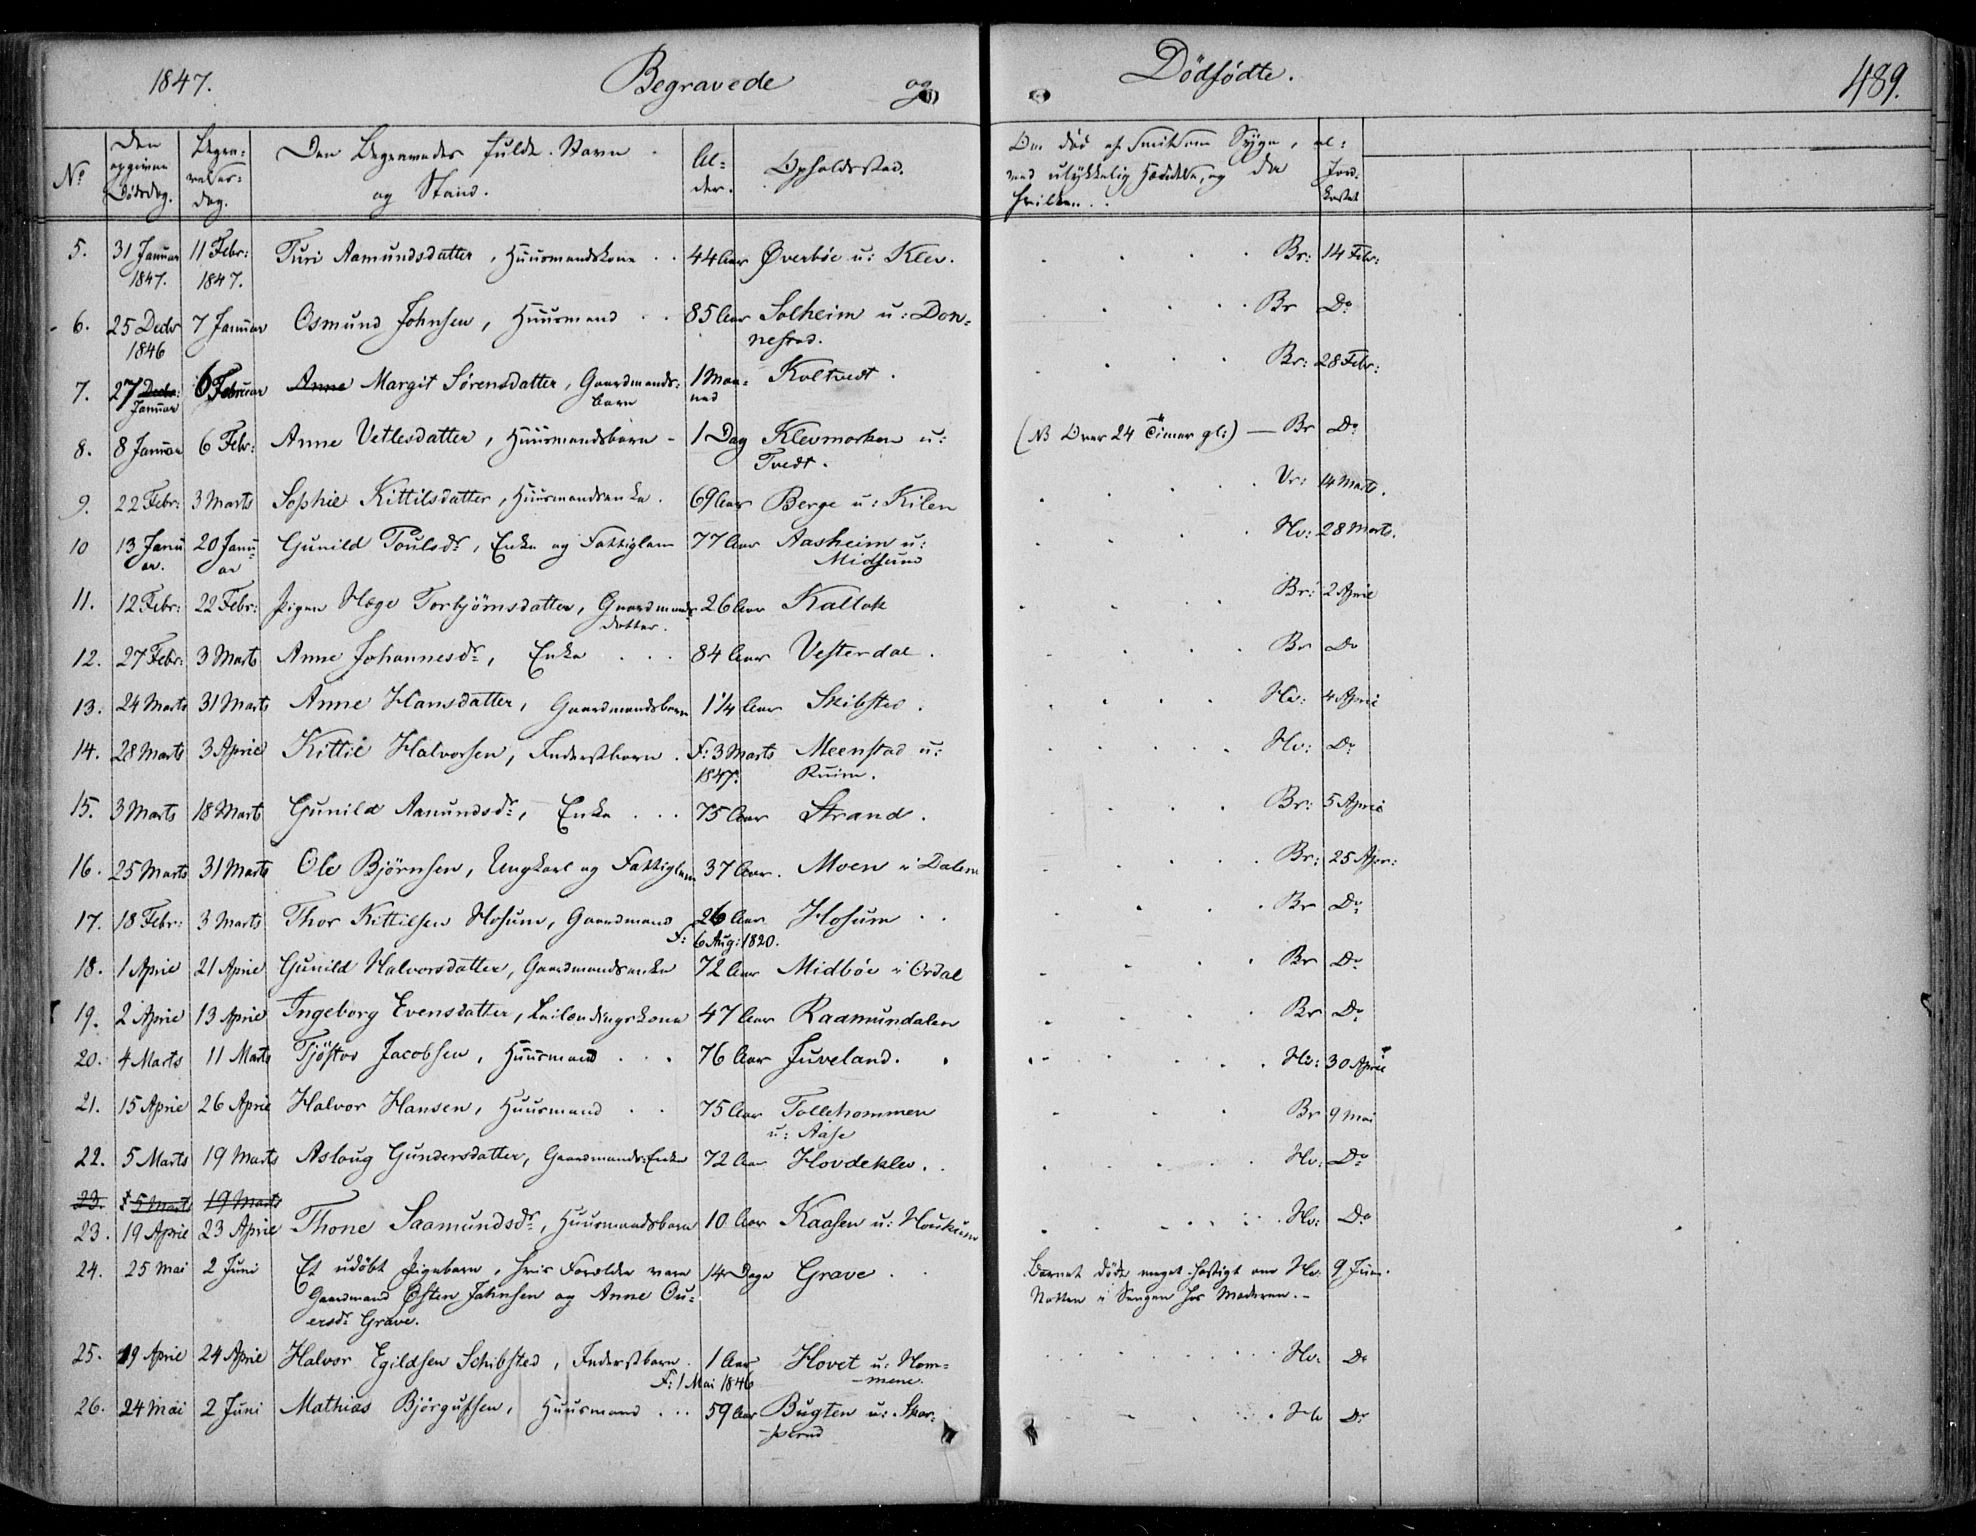 1847. Begravede og Dödfödte. 489.
No Den opgivne Dödsdag. Begravelsesdag. Den Begravedes fulde Navn og Stand. Alder. Opholdssted. Om död af smitsom Syge, eller ved ulykkelig Hændelse, og da hvilken. Jordkastet
5. 31 Januar 1847. 11 Febr: 1847. Turi Aamundsdatter, Huusmandskone 44 Aar Øverböe u: Klev. Br: 14 Febr:
6. 25 Decbr 1846 7 Januar Osmund Johnsen, Huusmand 85 Aar Solheim u: Donnestad. Br Do
7. 27 Decbr: Januar 6 Februar Anne Margit Sörensdatter, Gaardmandsbarn 1 Maaned Koltvedt. Br: 28 Febr:
8. 8 Januar 6 Febr: Anne Vetlesdatter, Huusmandsbarn 1 Dag Klevmorken u: Tvedt. (NB Over 24 Timer gl:) Br Do
9. 22 Febr: 3 Marts Sophie Kittilsdatter, Huusmandsenke. 69 Aar Berge u: Kilen Vr: 14 Marts.
10 13 Januar. 20 Januar Gunild Poulsdr, Enke og Fattiglem 77 Aar Aasheim u: Midsund Hv: 28 Marts.
11. 12 Febr: 22 Febr: Pigen Hæge Torbjörnsdatter, Gaardmandsdatter. 26 Aar Kallak Br: 2 April
12. 27 Febr: 3 Marts Anne Johannesdr, Enke 84 Aar Vesterdal. Br Do
13. 24 Marts 31 Marts Anne Hansdatter, Gaardmandsbarn 1 1/4 Aar Skibsted. Hv: 4 April
14. 28 Marts 3 April Kittil Halvorsen, Inderstbarn. F: 3 Marts 1847. Meenstad u: Ruim. Hv: Do
15. 3 Marts 18 Marts Gunild Aamundsdr, Enke 75 Aar Strand. Br: 5 April
16. 25 Marts 31 Marts Ole Björnsen, Ungkarl og Fattiglem 37 Aar. Moen i Dalene Br: 25 Apr:
17. 18 Febr: 3 Marts Thor Kittilsen Hosum, Gaardmand 26 Aar F: 6 Aug: 1820. Hosum Br Do
18. 1 April 21 April Gunild Halvorsdatter, Gaardmandsenke 72 Aar Midböe i Ordal Br Do
19. 2 April 13 April Ingeborg Evensdatter, Leilændingskone 47 Aar Raamundalen Br Do
20. 4 Marts 11 Marts Tjöstov Jacobsen, Huusmand 76 Aar Juveland. Hv: 30 April
21. 15 April 26 April Halvor Hansen, Huusmand 75 Aar Tollehommen u: Aase Br 9 Mai
22. 5 Marts 19 Marts Aslaug Gundersdatter, Gaardmands-Enke 72 Aar Hovdeklev. Hv: Do
23. 5 Marts 19 Marts
23. 19 April 23 April Thone Saamundsdr, Huusmandsbarn 10 Aar Kaasen u: Houkum Hv: Do
24. 25 Mai 2 Juni Et udöbt Pigebarn, hvis Forældre vare 14 Dage Grave. Barnet döde meget hastigt om Hv. 9 Juni.
Gaardmand Østen Johnsen og Anne Ou= Natten i Sengen hos Moderen.
ersdr Grave.
25. 19 April 24 April Halvor Egildsen Schibsted, Inderstbarn. 1 Aar F: 1 Mai 1846 Hovet u: Hommene. Hv: Do
26. 24 Mai 2 Juni Mathias Björgufsen, Huusmand 59 Aar Bugten u: Skarperud Hv Do